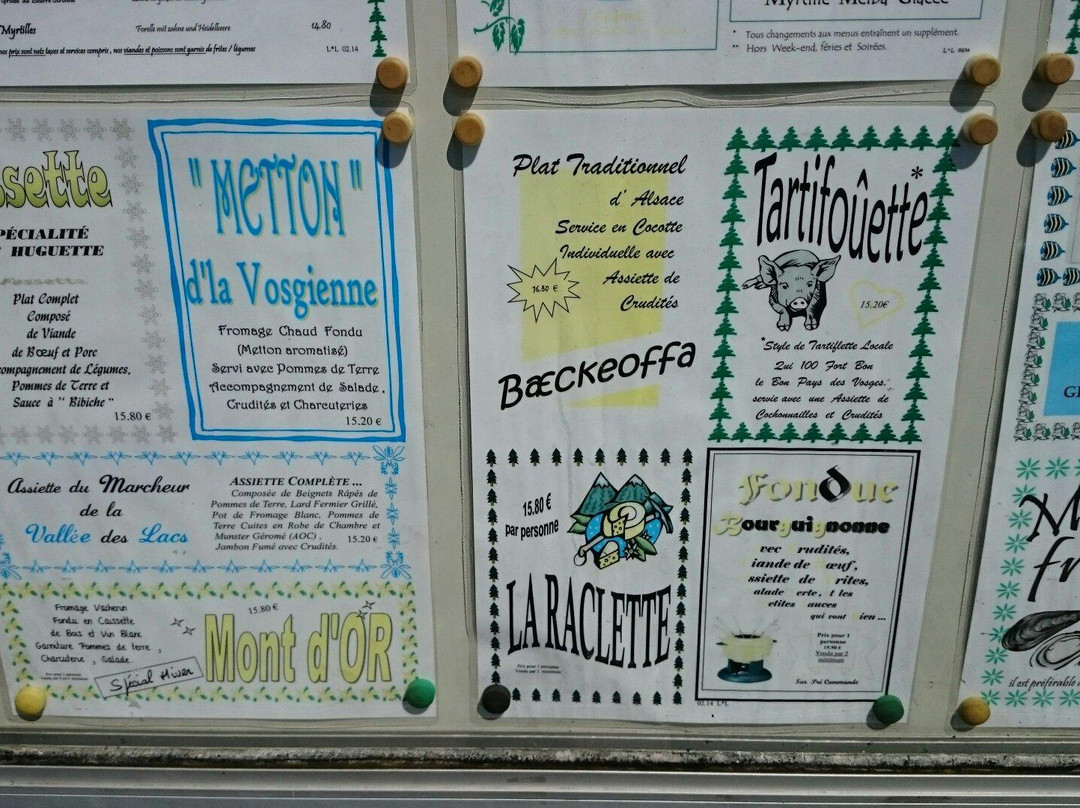 Myrtilles
Forelle mit sahne und Heidelbeere
14.80
nos prix sont nets taxes et services compris , nos viandes et poissons sont garnis de frites / légumes
L*L 02.14
Myrtille Melba Glacée
* Tous changements aux menus entraînent un supplément.
** Hors Week-end, féries et Soirées.
L*L 02.14
ssette
PÉCIALITÉ
HUGUETTE
Plat Complet
Composé
de Viande
de Bœuf et Porc
ccompagnement de Légumes,
Pommes de Terre et
Sauce à " Bibiche "
15.80 €
" METTON "
d'la Vosgienne
Fromage Chaud Fondu
(Metton aromatisé)
Servi avec Pommes de Terre
Accompagnement de Salade,
Crudités et Charcuteries
15.20 €
Assiette du Marcheur
de la
Vallée des Lacs
ASSIETTE COMPLÈTE ...
Composée de Beignets Râpés de
Pommes de Terre, Lard Fermier Grillé,
Pot de Fromage Blanc, Pommes de
Terre Cuites en Robe de Chambre et
Munster Géromé (AOC) ,
Jambon Fumé avec Crudités.
15.20 €
Fromage Vacherin
Fondu en Caissette
de Bois et Vin Blanc
Garniture Pommes de terre ,
Charcuterie , Salade
15.80 €
Mont d'OR
Spécial Hiver
Plat Traditionnel
d' Alsace
Service en Cocotte
Individuelle avec
Assiette de
Crudités
16.80 €
Bæckeoffa
Tartifoûette*
15.20€
*Style de Tartiflette Locale
Qui 100 Fort Bon
le Bon Pays des Vosges,
servie avec une Assiette de
Cochonnailles et Crudités
15.80 €
par personne
LA RACLETTE
Prix pour 1 personne
Vendu par 2 minimum
Fondue
Bourguignonne
vec rudités,
iande de œuf,
ssiette de rites,
alade erte, t les
etites auces
qui vont ien ...
Prix pour 1
personne
15.90 €
Vendu par 2
minimum
Sur Pré Commande
02.14 L*L
il est préférable